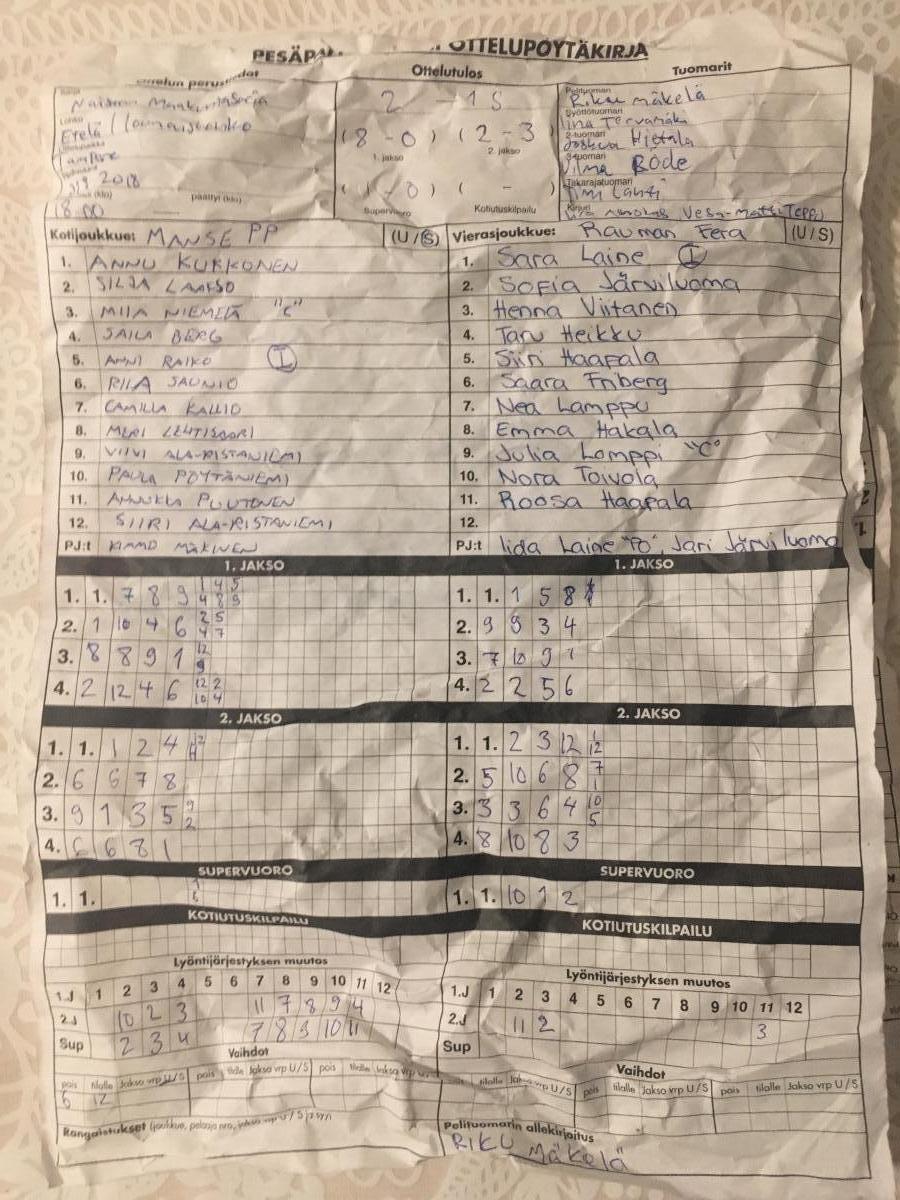 PESÄP OTTELUPÖYTÄKIRJA
Ottelutulos
Tuomarit
2 - 1 S
(8 - 0) (2 - 3)
1. jakso 2. jakso
(1 - 0) ( - )
Supervuoro Kotiutuskilpailu
Etelä /
2018
alkoi (klo) päättyi (klo)
18.00
Pelituomari
Riku Mäkelä
Syöttötuomari
Tiina Tervamäki
2-tuomari
Joshua Hietala
3-tuomari
Vilma Bode
Takarajatuomari
Timi Lahti
Kirjuri
Vesa-Matti, Teppo
Kotijoukkue: MANSE PP (U/S)
1. ANNU KUKKONEN
2. SILJA LAAKSO
3. MIIA NIEMELÄ "C"
4. SAILA BERG
5. ANNI RAIKO I
6. RIIA SAUNIO
7. CAMILLA KALLIO
8. MERI LEHTISAARI
9. VIIVI ALA-RISTANIEMI
10. PAULA PÖYTÄNIEMI
11. ANNUKKA PUUTONEN
12. SIIRI ALA-RISTANIEMI
PJ:t KIMMO MÄKINEN
Vierasjoukkue: Rauman Fera (U/S)
1. Sara Laine I
2. Sofia Järviluoma
3. Henna Viitanen
4. Taru Heikku
5. Siiri Haapala
6. Saara Friberg
7. Nea Lamppu
8. Emma Hakala
9. Julia Lomppi "C"
10. Nora Toivola
11. Roosa Haapala
12.
PJ:t Iida Laine "PO", Jari Järviluoma
1. JAKSO
1. 1. 7 8 9 1 4 5
4 8 9
2. 1 10 4 6 2 5
4 7
3. 8 8 9 1 12
9
4. 2 12 4 6 12 2
10 4
1. JAKSO
1. 1. 1 5 8
2. 9 9 3 4
3. 7 10 9 1
4. 2 2 5 6
2. JAKSO
1. 1. 1 2 4
2. 6 6 7 8
3. 9 1 3 5 9
2
4. 6 6 8 1
2. JAKSO
1. 1. 2 3 12 1
12
2. 5 10 6 8 7
1
3. 3 3 6 4 10
5
4. 8 10 8 3
SUPERVUORO
1. 1.
SUPERVUORO
1. 1. 10 1 2
KOTIUTUSKILPAILU
KOTIUTUSKILPAILU
Lyöntijärjestyksen muutos
1.J 1 2 3 4 5 6 7 8 9 10 11 12
2.J 10 2 3 11 7 8 9 4
Sup 2 3 4 7 8 9 10 11
Lyöntijärjestyksen muutos
1.J 1 2 3 4 5 6 7 8 9 10 11 12
2.J 11 2 3
Sup
Vaihdot
pois tilalle Jakso vrp U/S pois tilalle Jakso vrp U/S pois tilalle Jakso vrp U/S
6 12
Rangaistukset
Vaihdot
tilalle Jakso vrp U/S pois tilalle Jakso vrp U/S pois tilalle Jakso vrp U/S
Pelituomarin allekirjoitus
RIKU Mäkelä